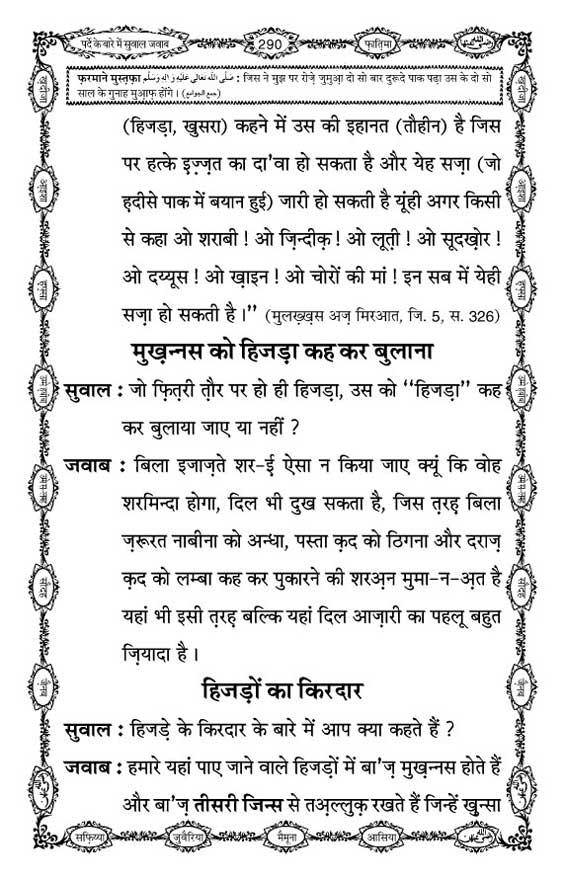 पर्दे के बारे में सुवाल जवाब
290
फ़ातिमा
फ़रमाने मुस्तफ़ा صَلَّى اللّٰهُ تَعَالٰى عَلَيْهِ وَاٰلِهٖ وَسَلَّم : जिस ने मुझ पर रोज़े जुमुआ़ दो सो बार दुरूदे पाक पढ़ा उस के दो सो
साल के गुनाह मुआ़फ़ होंगे । (جمع الجوامع)
(हिजड़ा, खुसरा) कहने में उस की इहानत (तौहीन) है जिस
पर हत्के इ़ज़्ज़त का दा'वा हो सकता है और येह सज़ा (जो
ह़दीसे पाक में बयान हुई) जारी हो सकती है यूंही अगर किसी
से कहा ओ शराबी ! ओ ज़िन्दीक़ ! ओ लूत़ी ! ओ सूदख़ोर !
ओ दय्यूस ! ओ ख़ाइन ! ओ चोरों की मां ! इन सब में येही
सज़ा हो सकती है ।” (मुलख़्ख़स अज़ मिरआत, जि. 5, स. 326)
मुख़न्नस को हिजड़ा कह कर बुलाना
सुवाल : जो फ़ित़री त़ौर पर हो ही हिजड़ा, उस को “हिजड़ा” कह
कर बुलाया जाए या नहीं ?
जवाब : बिला इजाज़ते शर-ई ऐसा न किया जाए क्यूं कि वोह
शरमिन्दा होगा, दिल भी दुख सकता है, जिस त़रह़ बिला
ज़रूरत नाबीना को अन्धा, पस्ता क़द को ठिगना और दराज़
क़द को लम्बा कह कर पुकारने की शरअ़न मुमा-न-अ़त है
यहां भी इसी त़रह़ बल्कि यहां दिल आज़ारी का पहलू बहुत
ज़ियादा है ।
हिजड़ों का किरदार
सुवाल : हिजड़े के किरदार के बारे में आप क्या कहते हैं ?
जवाब : हमारे यहां पाए जाने वाले हिजड़ों में बा'ज़ मुख़न्नस होते हैं
और बा'ज़ तीसरी जिन्स से तअ़ल्लुक़ रखते हैं जिन्हें ख़ुन्सा
सफ़िय्या
जुवैरिया
मैमूना
आसिया